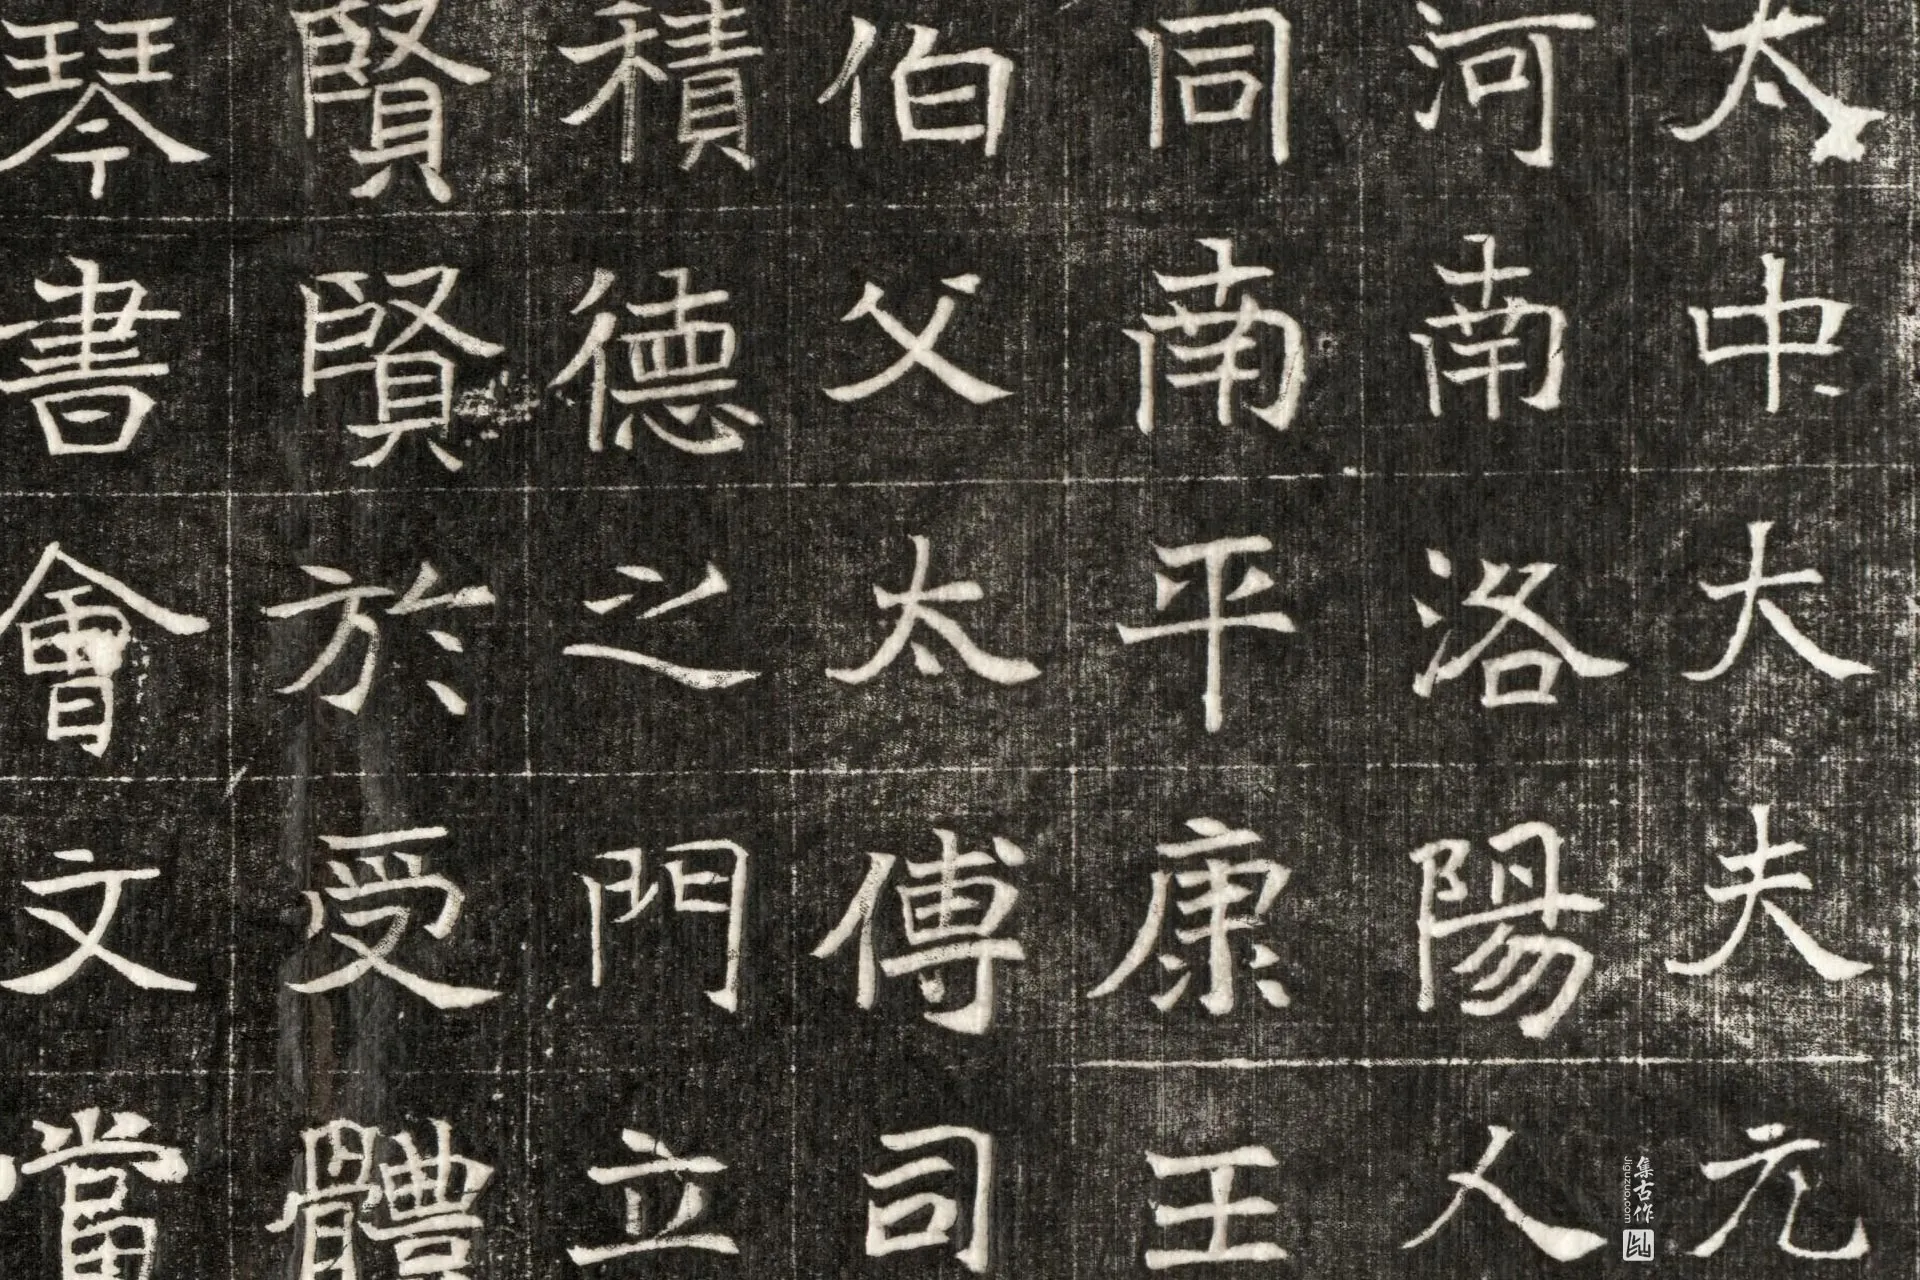 太中大夫元
河南洛陽人
同南平康王
伯父太傅司
積德之門立
賢賢於受體
琴書會文當
集古作
jiguzuo.com